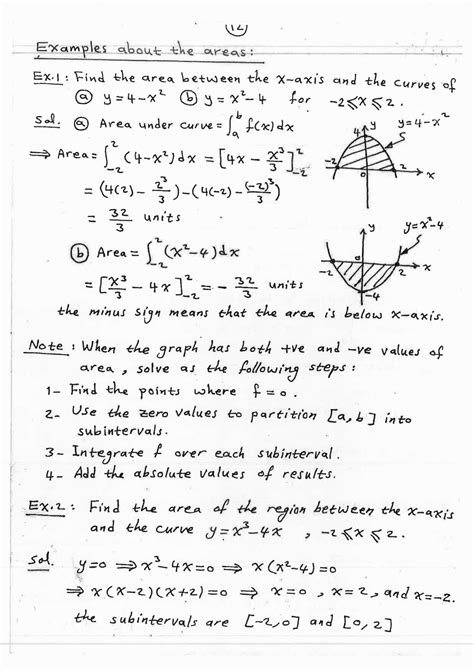 (12)
Examples about the areas:
Ex.1: Find the area between the x-axis and the curves of
ⓐ y = 4-x² ⓑ y = x²-4 for -2≤x≤2.
Sol. ⓐ Area under curve = ∫_a^b f(x)dx
y=4-x²
y
-2 0 2 x
⇒ Area = ∫_{-2}^{2} (4-x²)dx = [4x - x³/3]_{-2}^{2}
= (4(2) - 2³/3) - (4(-2) - (-2)³/3)
= 32/3 units
y y=x²-4
-2 0 2 x
-4
ⓑ Area = ∫_{-2}^{2} (x²-4)dx
= [x³/3 - 4x]_{-2}^{2} = - 32/3 units
the minus sign means that the area is below x-axis.
Note : When the graph has both +ve and -ve values of
area , solve as the following steps :
1- Find the points where f = 0.
2- Use the zero values to partition [a,b] into
subintervals.
3- Integrate f over each subinterval.
4- Add the absolute values of results.
Ex.2: Find the area of the region between the x-axis
and the curve y = x³-4x , -2≤x≤2.
Sol. y=0 ⇒ x³-4x=0 ⇒ x(x²-4)=0
⇒ x(x-2)(x+2)=0 ⇒ x=0 , x=2, and x=-2.
the subintervals are [-2,0] and [0,2]